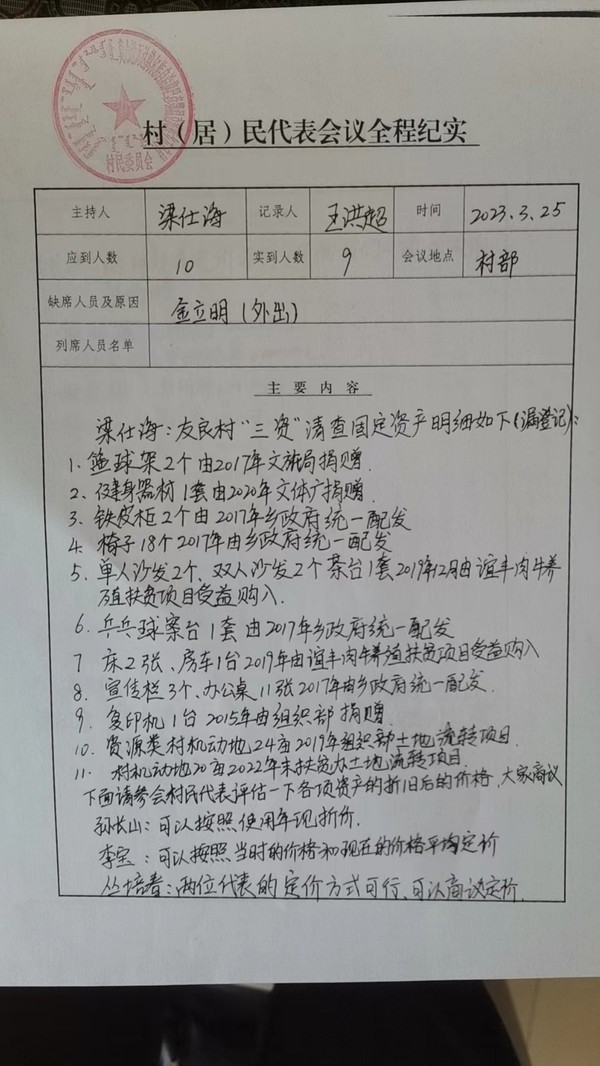 村民委员会
村（居）民代表会议全程纪实
主持人 梁仕海 记录人 王洪超 时间 2023.3.25
应到人数 10 实到人数 9 会议地点 村部
缺席人员及原因 金立明(外出)
列席人员名单
主要内容
梁仕海：友良村“三资”清查固定资产明细如下(漏登记)：
1、篮球架2个由2017年文旅局捐赠.
2、健身器材1套由2020年文体广捐赠.
3、铁皮柜2个由2017年乡政府统一配发
4、椅子18个2017年由乡政府统一配发
5、单人沙发2个、双人沙发2个茶台1套2019年12月由谊丰肉牛养
殖扶贫项目受益购入.
6、乒乓球案台1套由2017年乡政府统一配发
7 床2张、房车1台2019年由谊丰肉牛养殖扶贫项目受益购入
8、宣传栏3个、办公桌11张2017年由乡政府统一配发.
9、复印机1台2015年由组织部捐赠.
10、资源类村机动地24亩2019年组织部土地流转项目.
11、村机动地20亩2022年末扶贫办土地流转项目.
下面请参会村民代表评估一下各项资产的折旧后的价格，大家商议
孙长山：可以按照使用年现折价.
李宝：可以按照当时的价格和现在的价格平均定价
丛培春：两位代表的定价方式可行，可以商议定价.